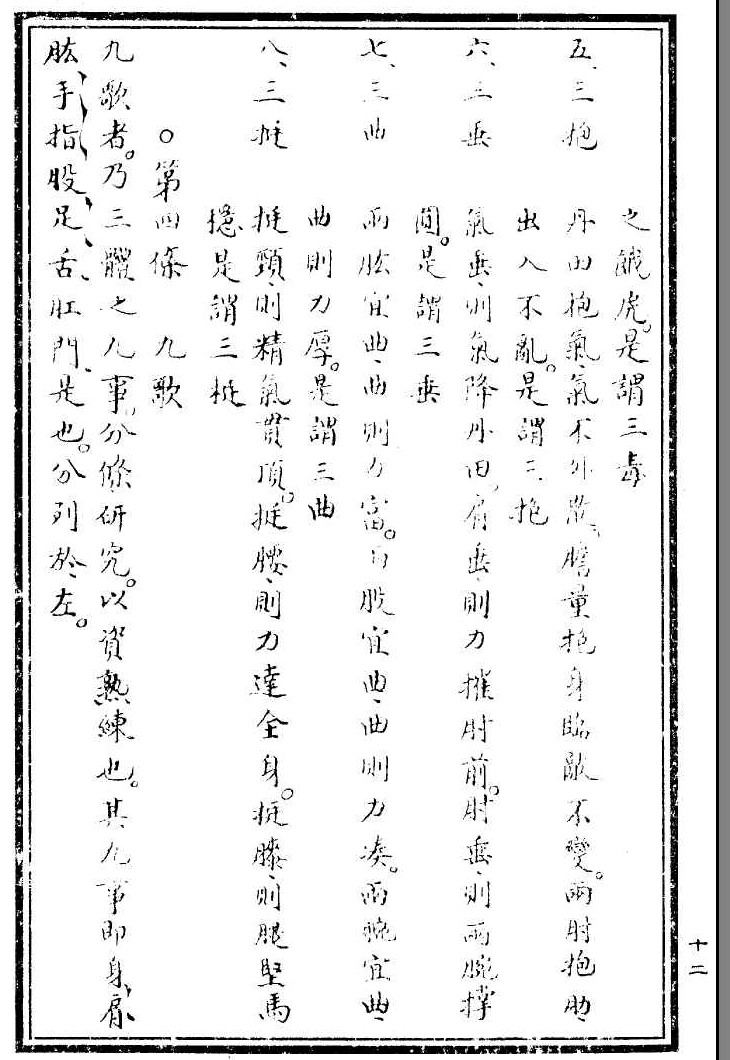 之餓虎。是謂三毒
五、三抱 丹田抱氣、氣不外散。膽量抱身臨敵不變。兩肘抱肋、
出入不亂。是謂三抱
六、三垂 氣垂、則氣降丹田。肩垂、則力摧肘前。肘垂、則兩腕撑
圓。是謂三垂
七、三曲 兩肱宜曲、曲則力富。兩股宜曲、曲則力凑。兩腕宜曲、
曲則力厚。是謂三曲
八、三挺 挺頸、則精氣貫頂。挺腰、則力達全身。挺膝、則腿堅馬
穩是謂三挺
○第四條 九歌
九歌者。乃三體之九事。分條研究。以資熟練也。其九事即身、肩、
肱、手、指、股、足、舌、肛門、是也。分列於、左。
十二